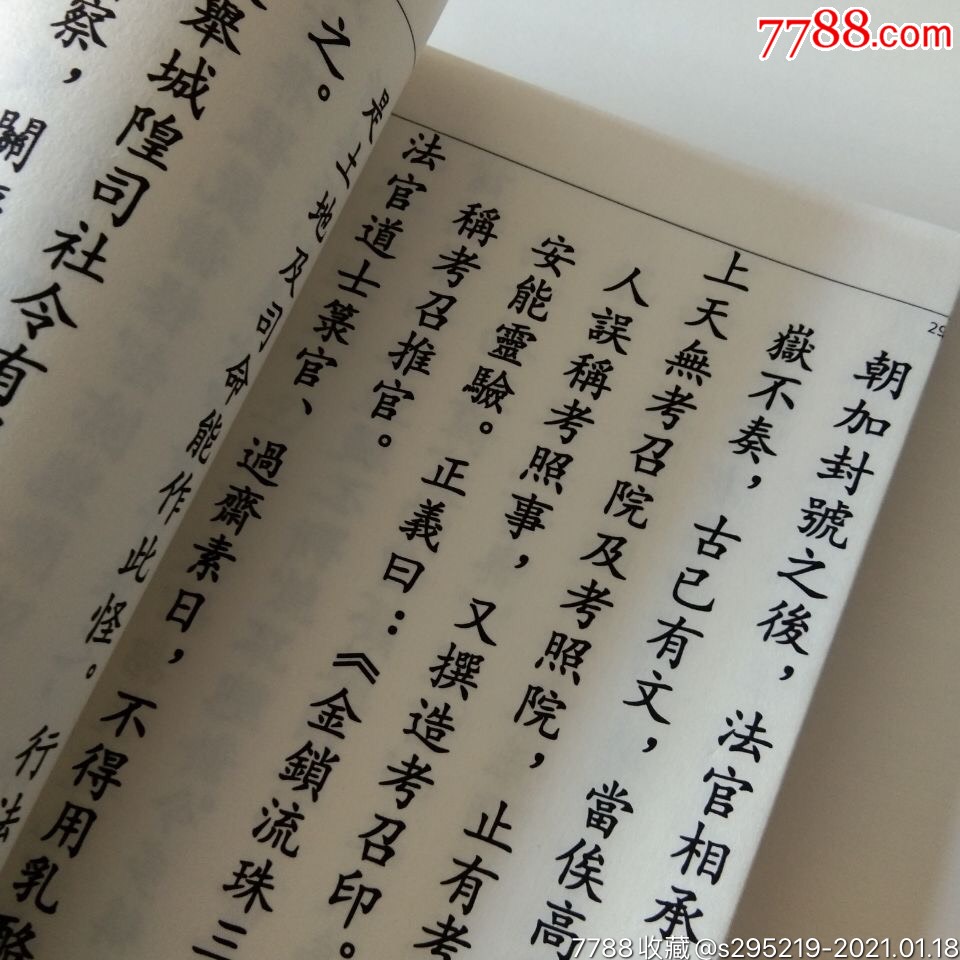 朝加封號之後，法官相承
嶽不奏，古已有文，當俟高
上天無考召院及考照院，止有考
人誤稱考照事，又撰造考召印。
安能靈驗。正義曰：《金鎖流珠三
稱考召推官。
法官道士箓官、過齋素日，不得用乳酪
是土地及司命能作此怪。行法
之。
舉城隍司社令有
察，關
29
7788.com
7788收藏@s295219-2021.01.18